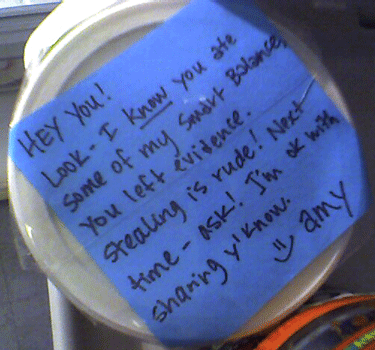 HEY YOU!
Look - I know you ate
some of my Smart Balance,
you left evidence.
Stealing is rude! Next
time - ask! I'm ok with
sharing y'know.
amy